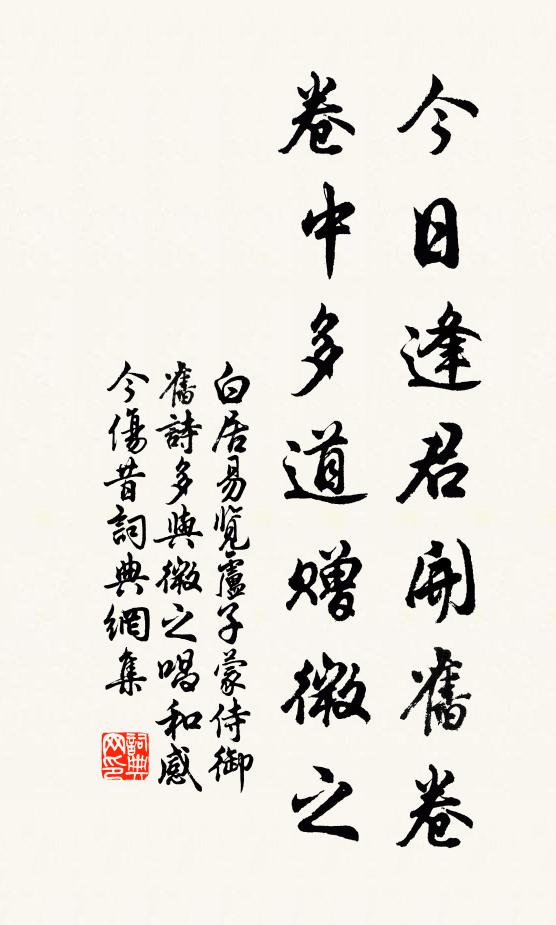 今日逢君開舊卷
卷中多道贈微之
白居易覽盧子蒙侍御
舊詩多與微之唱和感
今傷昔詞典網集
詞典
网印